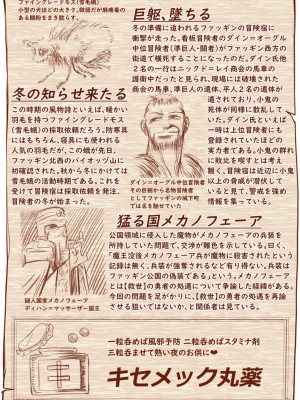 ファイングレードモス(雪毛蛾)
小型の犬ほどの大きさ。微弱だが麻痺毒の
ある鱗粉をまき散らす。
冬の知らせ来たる
この時期の風物詩といえば、暖かい
羽毛を持つファイングレードモス
(雪毛蛾)の採取依頼だろう。防寒具
にはもちろん、寝具にも使われる
人気の羽毛だが、この蛾が先日、
ファッギン北西のバイオッヅ山に
初確認された。秋から冬にかけては
雪毛蛾の活動時期である。これを
受けて冒険宿は採取依頼を発注、
冒険者の冬が始まった。
巨躯、墮ちる
冬の準備に追われるファッギンの冒険宿に
衝撃が走った。看板冒険者のダイン=オーグル
中位冒険者(準巨人・闘士)がファッギン西方の
街道で横死することになったのだ。ダイン氏他
2名の一行はニックドーレイ商会の馬車の
護衛中だったと見られ、現場には破壊された
商会の馬車、準巨人の遺体、平人2名の遺体が
遺されており、小鬼の
死体が同様に散乱して
いた。ダイン氏といえば
一時は上位冒険者にも
登録されていたほどの
実力者である。小鬼の群れ
に敗北を喫すとは考え
難く、冒険宿は近辺に小鬼
以上の脅威が潜伏して
いると見て、警戒を強め
情報を集っている。
ダイン=オーグル中位冒険者
その巨躯から名物冒険者
としてファッギンの城下町
では名を馳せていた
猛る国メカノフェーア
公国領域に侵入した魔物がメカノフェーアの兵装を
所持していた問題で、交渉が難色を示している。曰く、
「魔王没後メカノフェーア兵が魔物に殺害されたという
記録は無く、兵装が強奪されるなど有り得ない。兵装は
ファッギン公国の偽装である」という。メカノフェーア
とは【救世】の勇者の処遇について争論した経緯がある。
今回の問題を足がかりに、【救世】の勇者の処遇を再論
させる狙いではないか、と関係者は見ている。
樋人国家メカノフェーア
ディハン=マッサーザー国王
一粒呑めば風邪予防 二粒呑めばスタミナ剤
三粒呑ませて熱い夜のお供に♥
キセメック丸薬